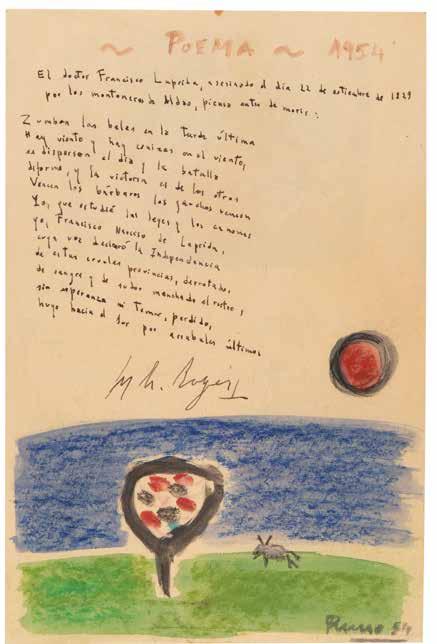 ~ POEMA ~ 1954
El doctor Francisco Laprida, asesinado el día 22 de setiembre de 1829
por los montoneros de Aldao, piensa antes de morir:
Zumban las balas en la tarde última
Hay viento y hay cenizas en el viento,
se dispersan el día y la batalla
deforme, y la victoria es de los otros
Vencen los bárbaros los gauchos vencen
Yo, que estudié las leyes y los cánones
yo, Francisco Narciso de Laprida,
cuya voz declaró la Independencia
de estas crueles provincias, derrotado,
de sangre y de sudor manchado el rostro,
sin esperanza ni temor, perdido,
huyo hacia el Sur por arrabales últimos
Borges
Russo 54